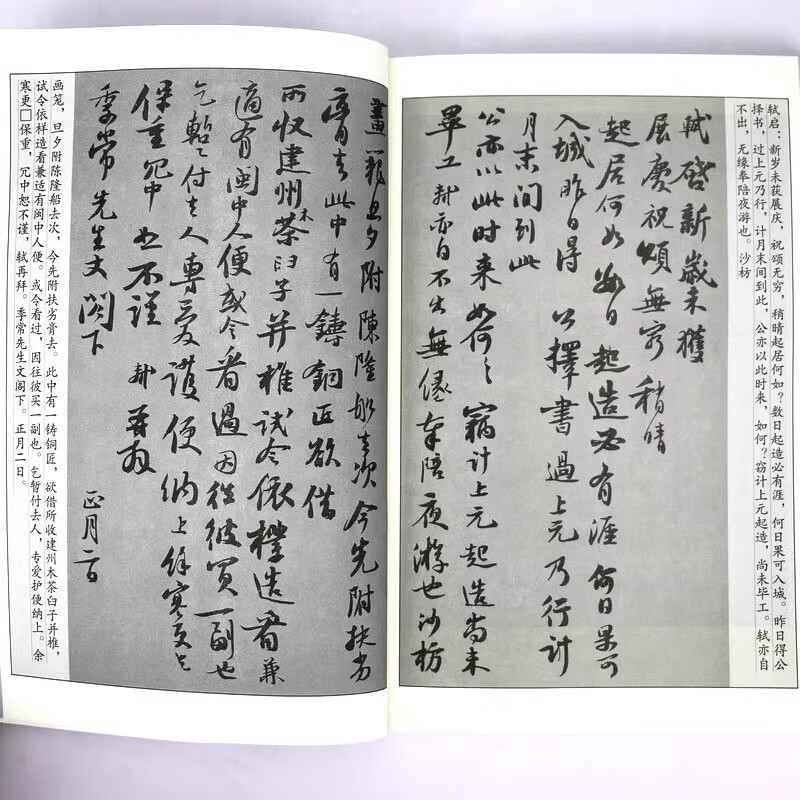 轼启:新岁未获展庆,祝颂无穷,稍晴起居何如?数日起造必有涯,何日果可入城。昨日得公
择书,过上元乃行,计月末间到此,公亦以此时来,如何?窃计上元起造,尚未毕工。轼亦自
不出,无缘奉陪夜游也。沙枋
軾啓新歲未獲
展慶祝頌無窮稍晴
起居何如數日起造必有涯何日果可
入城昨日得公擇書過上元乃行計
月末間到此
公亦以此時来如何々竊計上元起造尚未
畢工軾亦自不出無緣奉陪夜遊也沙枋
畫籠旦夕附陳隆船去次今先附扶劣
膏去此中有一鑄銅匠欲借
所収建州木茶臼子并椎試令依樣造看兼
適有閩中人便或令看過因徃彼買一副也
乞蹔付去人專愛護便納上餘寒更乞
保重冗中恕不謹軾再拜
季常先生丈閣下
正月二日
画笼,旦夕附陈隆船去次,今先附扶劣膏去。此中有一铸铜匠,欲借所收建州木茶臼子并椎,
试令依样造看兼适有闽中人便。或令看过,因往彼买一副也。乞暂付去人,专爱护便纳上。余
寒更□保重,冗中恕不谨,轼再拜。季常先生文阁下。正月二日。